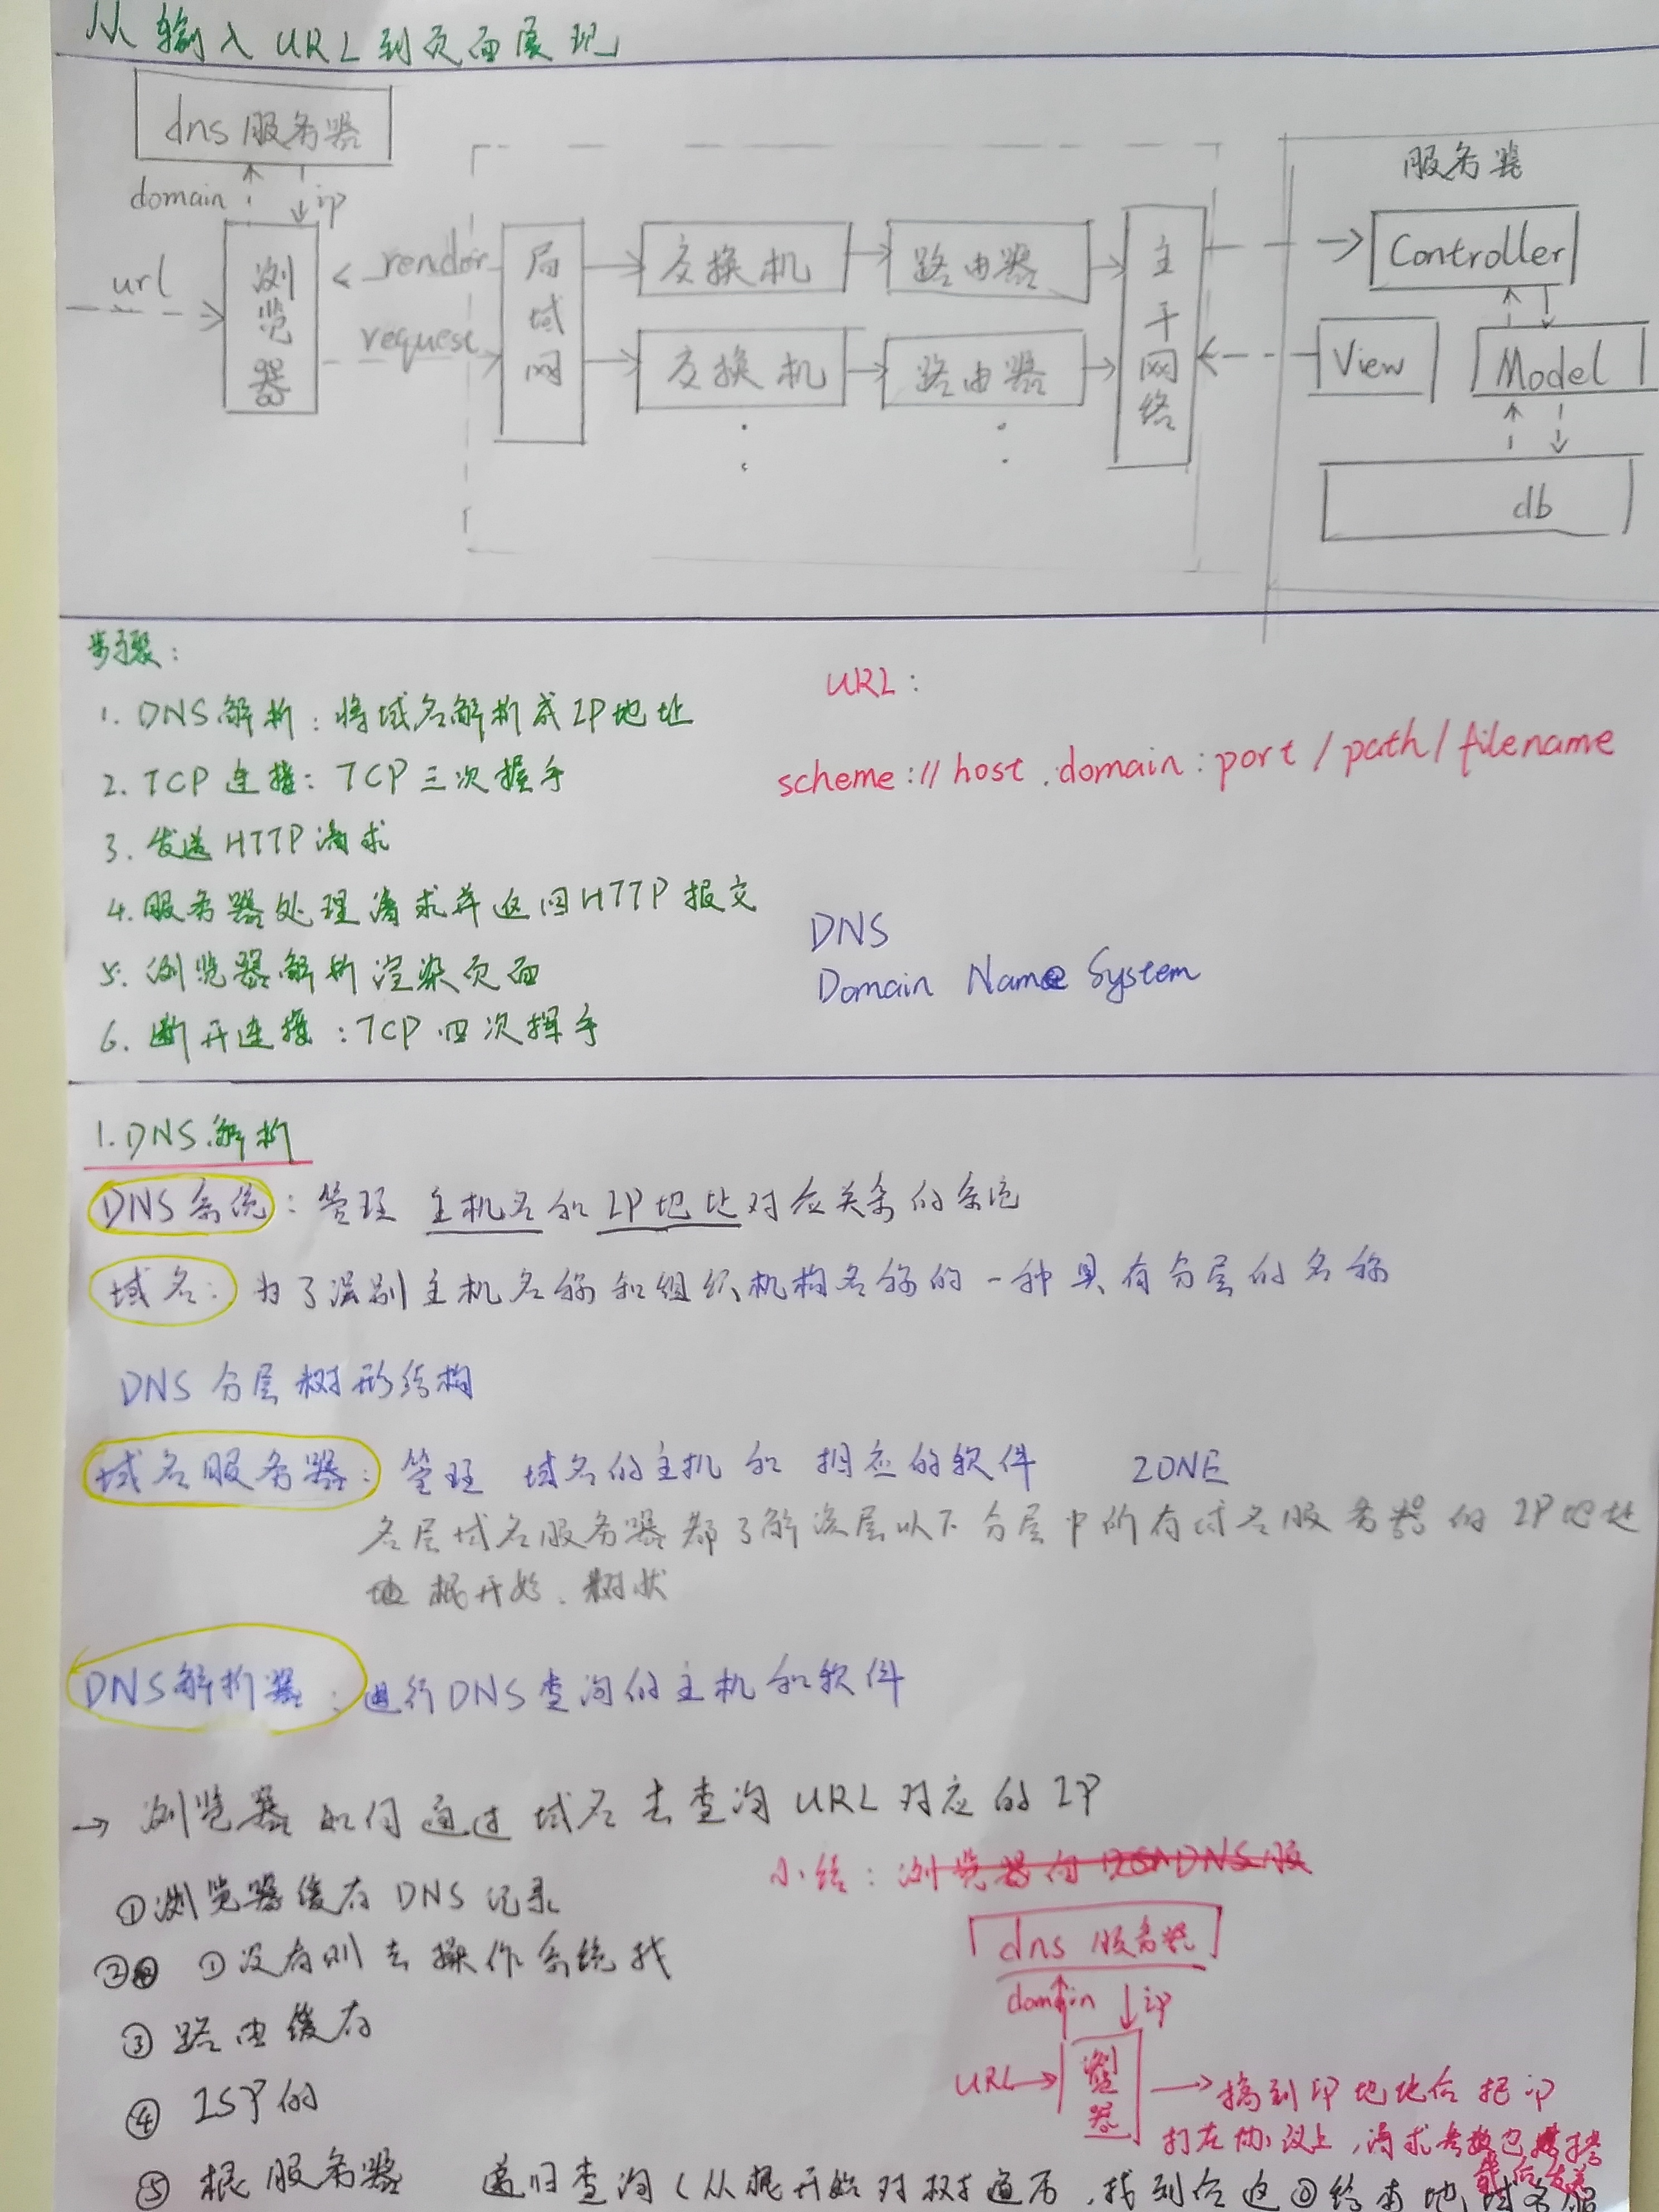 从输入URL到页面展现
dns服务器
domain ip
url 浏览器 render request 局域网 交换机 路由器 主干网络
交换机 路由器
服务器
Controller
View Model
db
步骤：
1. DNS解析：将域名解析成IP地址
2. TCP连接：TCP三次握手
3. 发送HTTP请求
4. 服务器处理请求并返回HTTP报文
5. 浏览器解析渲染页面
6. 断开连接：TCP四次挥手
URL：
scheme://host.domain:port/path/filename
DNS
Domain Name System
1. DNS解析
DNS系统：管理 主机名和IP地址对应关系的系统
域名：为了识别主机名称和组织机构名称的一种具有分层的名称
DNS分层树形结构
域名服务器：管理 域名的主机和相应的软件 ZONE
各层域名服务器都了解该层以下分层中所有域名服务器的IP地址
根开始.树状
DNS解析器：进行DNS查询的主机和软件
→ 浏览器如何通过域名去查询URL对应的IP
①浏览器缓存DNS记录
② ①没有则去操作系统找
③ 路由缓存
④ ISP的
小结：浏览器向DNS服
dns服务器
domain ip
URL→ 浏览器 → 搞到IP地址后把IP
打在协议上，请求参数也
⑤ 根服务器 递归查询（从根开始对树遍历，找到后返回给本地域名服